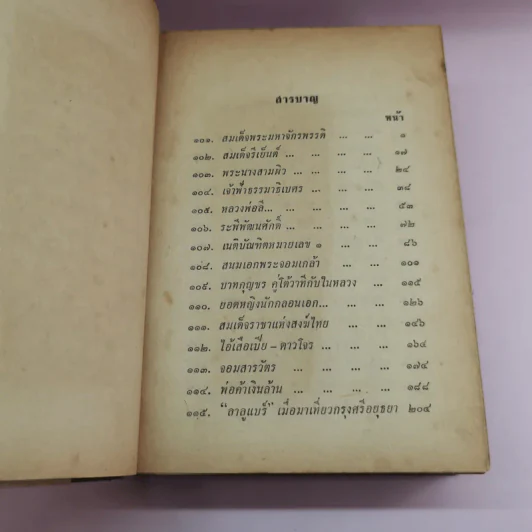 สารบาญ
หน้า
๑๐๑. สมเด็จพระมหาจักรพรรดิ ... ... ๑
๑๐๒. สมเด็จรีเยนต์ ... ... ... ๑๗
๑๐๓. พระนางสามผิว ... ... ... ๒๔
๑๐๔. เจ้าฟ้าธรรมาธิเบศร ... ... ๓๘
๑๐๕. หลวงพ่อลี... ... ... ... ๕๓
๑๐๖. ระพีพัฒนศักดิ์ ... ... ... ๗๒
๑๐๗. เนติบัณฑิตหมายเลข ๑ ... ... ๘๖
๑๐๘. สนมเอกพระจอมเกล้า ... ... ๑๐๑
๑๐๙. บาทกุญชร คู่โต้วาทีกับในหลวง ... ๑๑๕
๑๑๐. ยอดหญิงนักกลอนเอก... ... ... ๑๒๖
๑๑๑. สมเด็จราชาแห่งสงฆ์ไทย ... ... ๑๔๖
๑๑๒. ไอ้เสือเปีย – ดาวโจร ... ... ๑๖๔
๑๑๓. จอมสารวัตร ... ... ... ๑๗๔
๑๑๔. พ่อค้าเงินล้าน ... ... ... ๑๘๘
๑๑๕. “อาอูแบร์” เมื่อมาเที่ยวกรุงศรีอยุธยา ๒๐๔